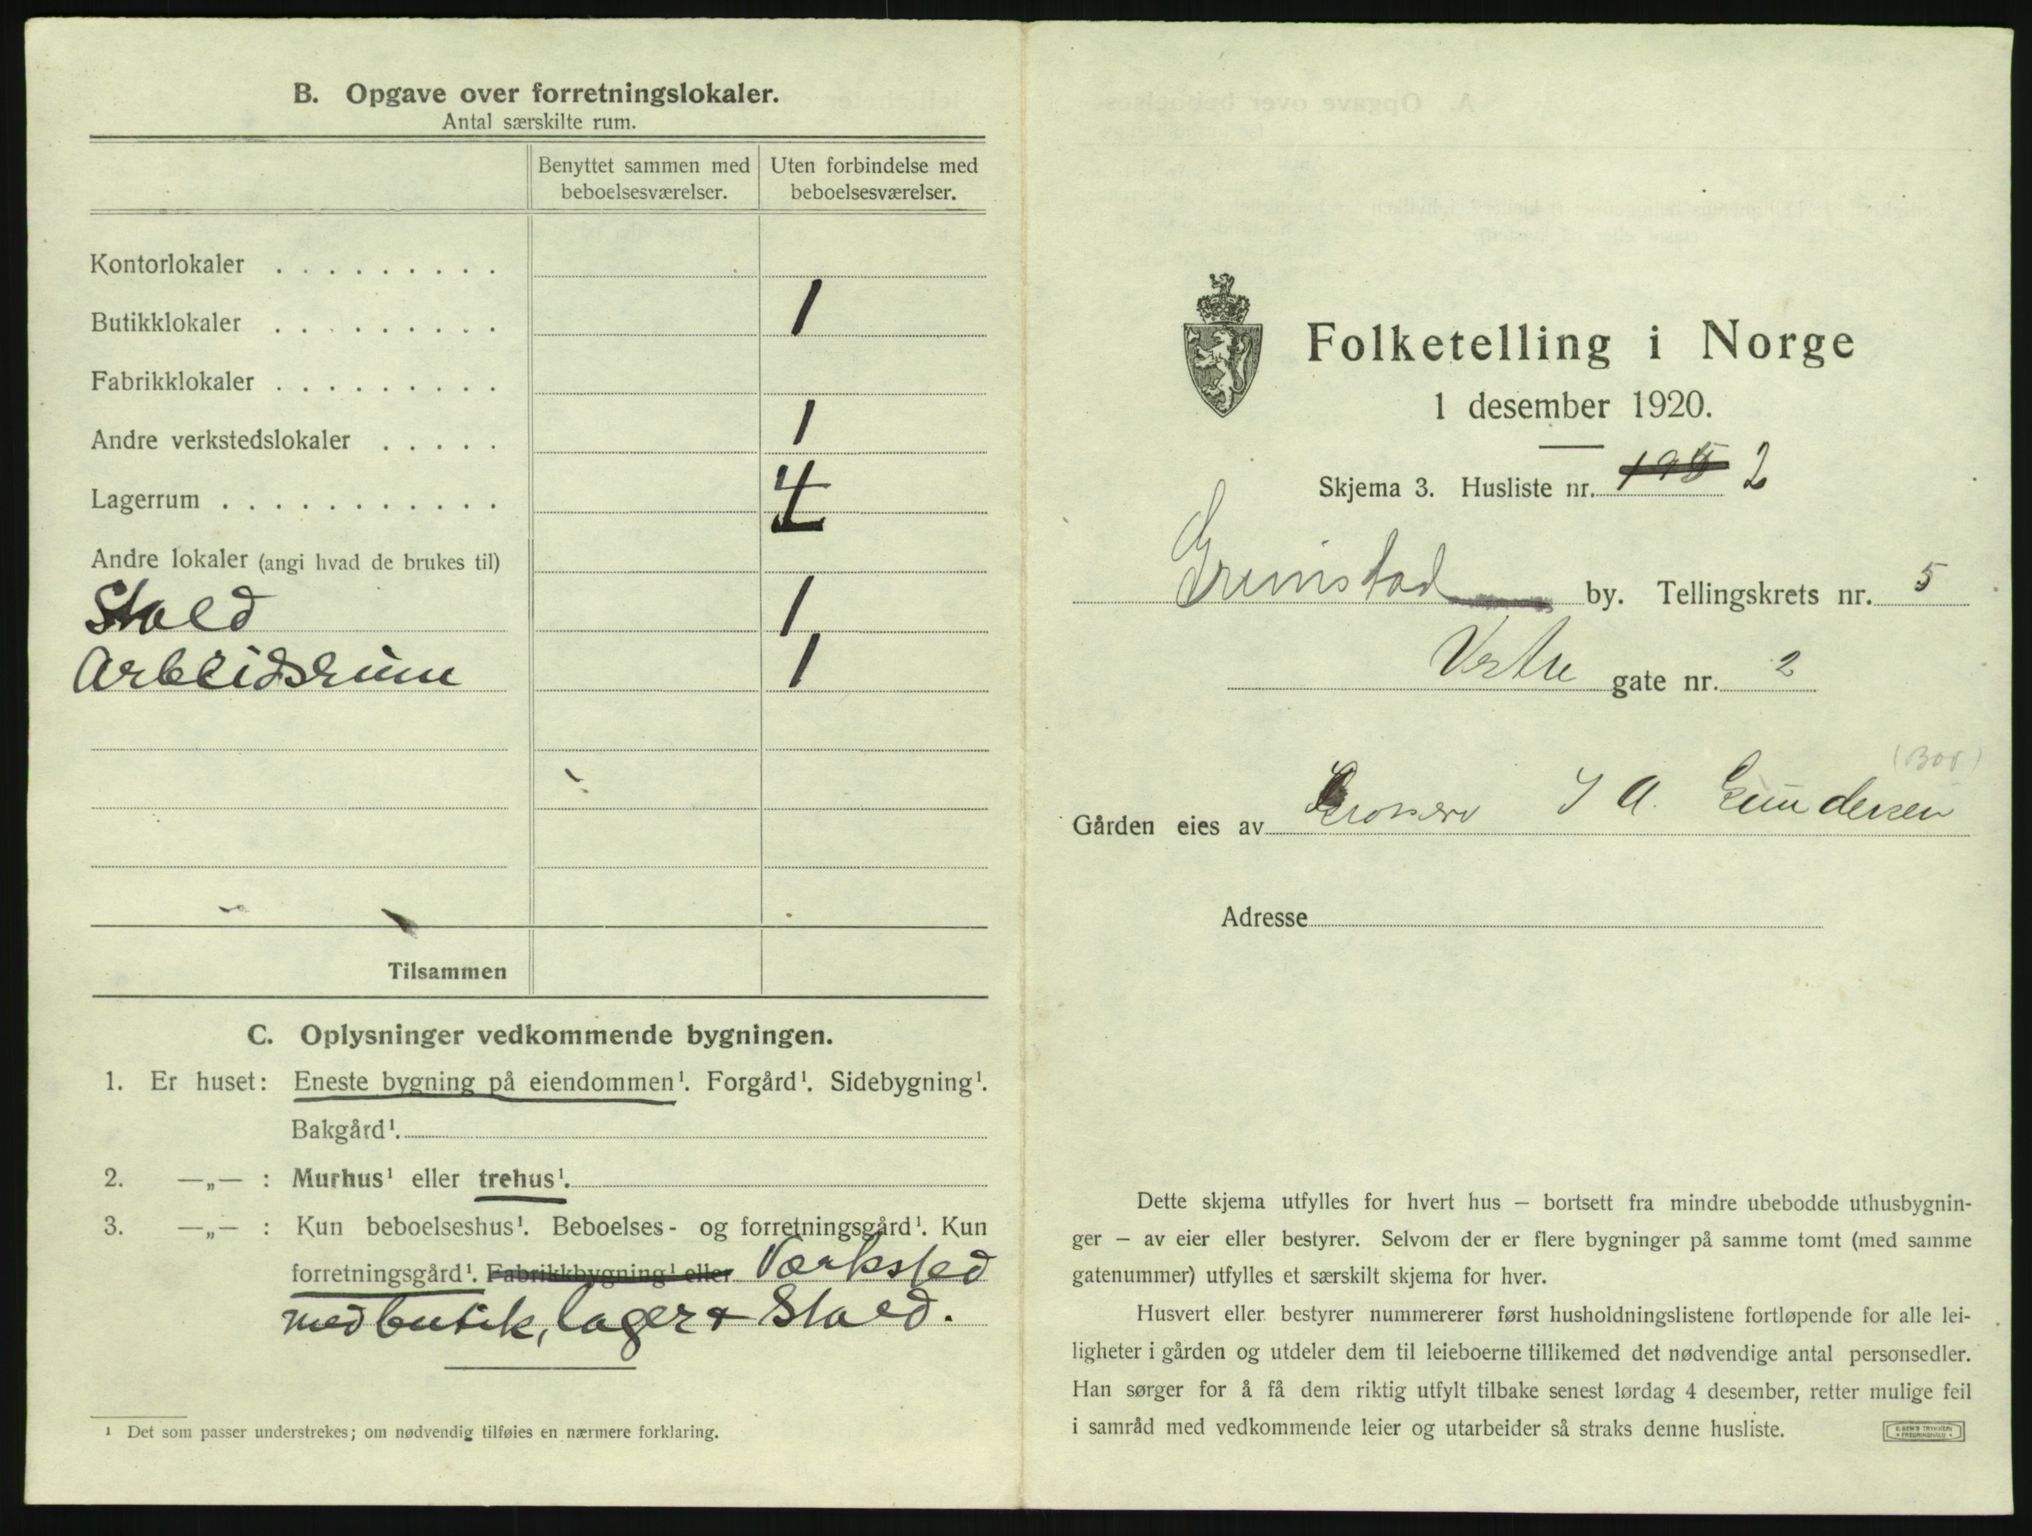 B. Opgave over forretningslokaler.
Antal særskilte rum.
Benyttet sammen med beboelsesværelser.
Uten forbindelse med beboelsesværelser.
Kontorlokaler . . . . . . . . .
Butikklokaler . . . . . . . . . 1
Fabrikklokaler . . . . . . . . .
Andre verkstedslokaler . . . . . 1
Lagerrum . . . . . . . . . . . . 4
Andre lokaler (angi hvad de brukes til)
Stald 1
Arbeidsrum 1
Tilsammen
C. Oplysninger vedkommende bygningen.
1. Er huset: Eneste bygning på eiendommen¹. Forgård¹. Sidebygning¹.
Bakgård¹.
2. —„— : Murhus¹ eller trehus¹.
3. —„— : Kun beboelseshus¹. Beboelses- og forretningsgård¹. Kun
forretningsgård¹. Fabrikkbygning¹ eller Værksted
med butik, lager + Stald.
¹ Det som passer understrekes; om nødvendig tilføies en nærmere forklaring.
Folketelling i Norge
1 desember 1920.
Skjema 3. Husliste nr. 2
Grimstad by. Tellingskrets nr. 5
Vestre gate nr. 2
(Bor)
Gården eies av Grosserer I A. Gundersen
Adresse
Dette skjema utfylles for hvert hus – bortsett fra mindre ubebodde uthusbygnin-
ger – av eier eller bestyrer. Selvom der er flere bygninger på samme tomt (med samme
gatenummer) utfylles et særskilt skjema for hver.
Husvert eller bestyrer nummererer først husholdningslistene fortløpende for alle lei-
ligheter i gården og utdeler dem til leieboerne tillikemed det nødvendige antal personsedler.
Han sørger for å få dem riktig utfylt tilbake senest lørdag 4 desember, retter mulige feil
i samråd med vedkommende leier og utarbeider så straks denne husliste.